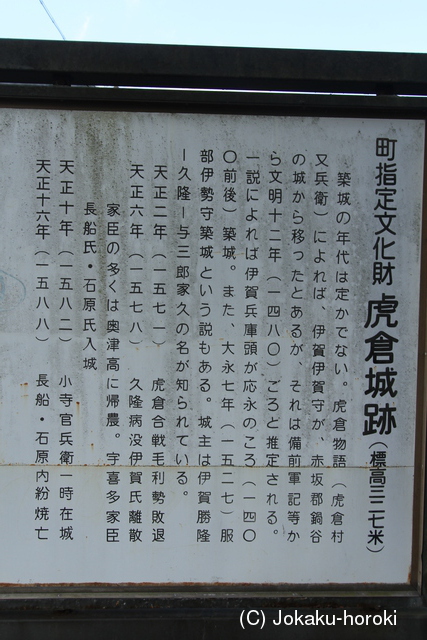 町指定文化財 虎倉城跡(標高三二七米)
築城の年代は定かでない。虎倉物語(虎倉村
又兵衛)によれば、伊賀伊賀守が、赤坂郡鍋谷
の城から移ったとあるが、それは備前軍記等か
ら文明十二年(一四八〇)ごろと推定される。
一説によれば伊賀兵庫頭が応永のころ(一四〇
〇前後)築城。また、大永七年(一五二七)服
部伊勢守築城という説もある。城主は伊賀勝隆
ー久隆ー与三郎家久の名が知られている。
天正二年(一五七一) 虎倉合戦毛利勢敗退
天正六年(一五七八) 久隆病没伊賀氏離散
家臣の多くは奥津高に帰農。宇喜多家臣
長船氏・石原氏入城
天正十年(一五八二) 小寺官兵衛一時在城
天正十六年(一五八八) 長船・石原内紛焼亡
(C) Jokaku-horoki